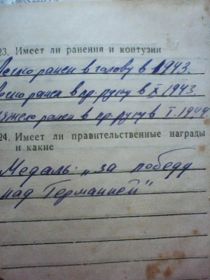 23. Имеет ли ранения и контузии
легко ранен в голову в 1943.
легко ранен в пр. руку в X. 1943
тяжело ранен в пр. руку в I. 1944
24. Имеет ли правительственные награды
и какие
Медаль: „за победу
над Германией"